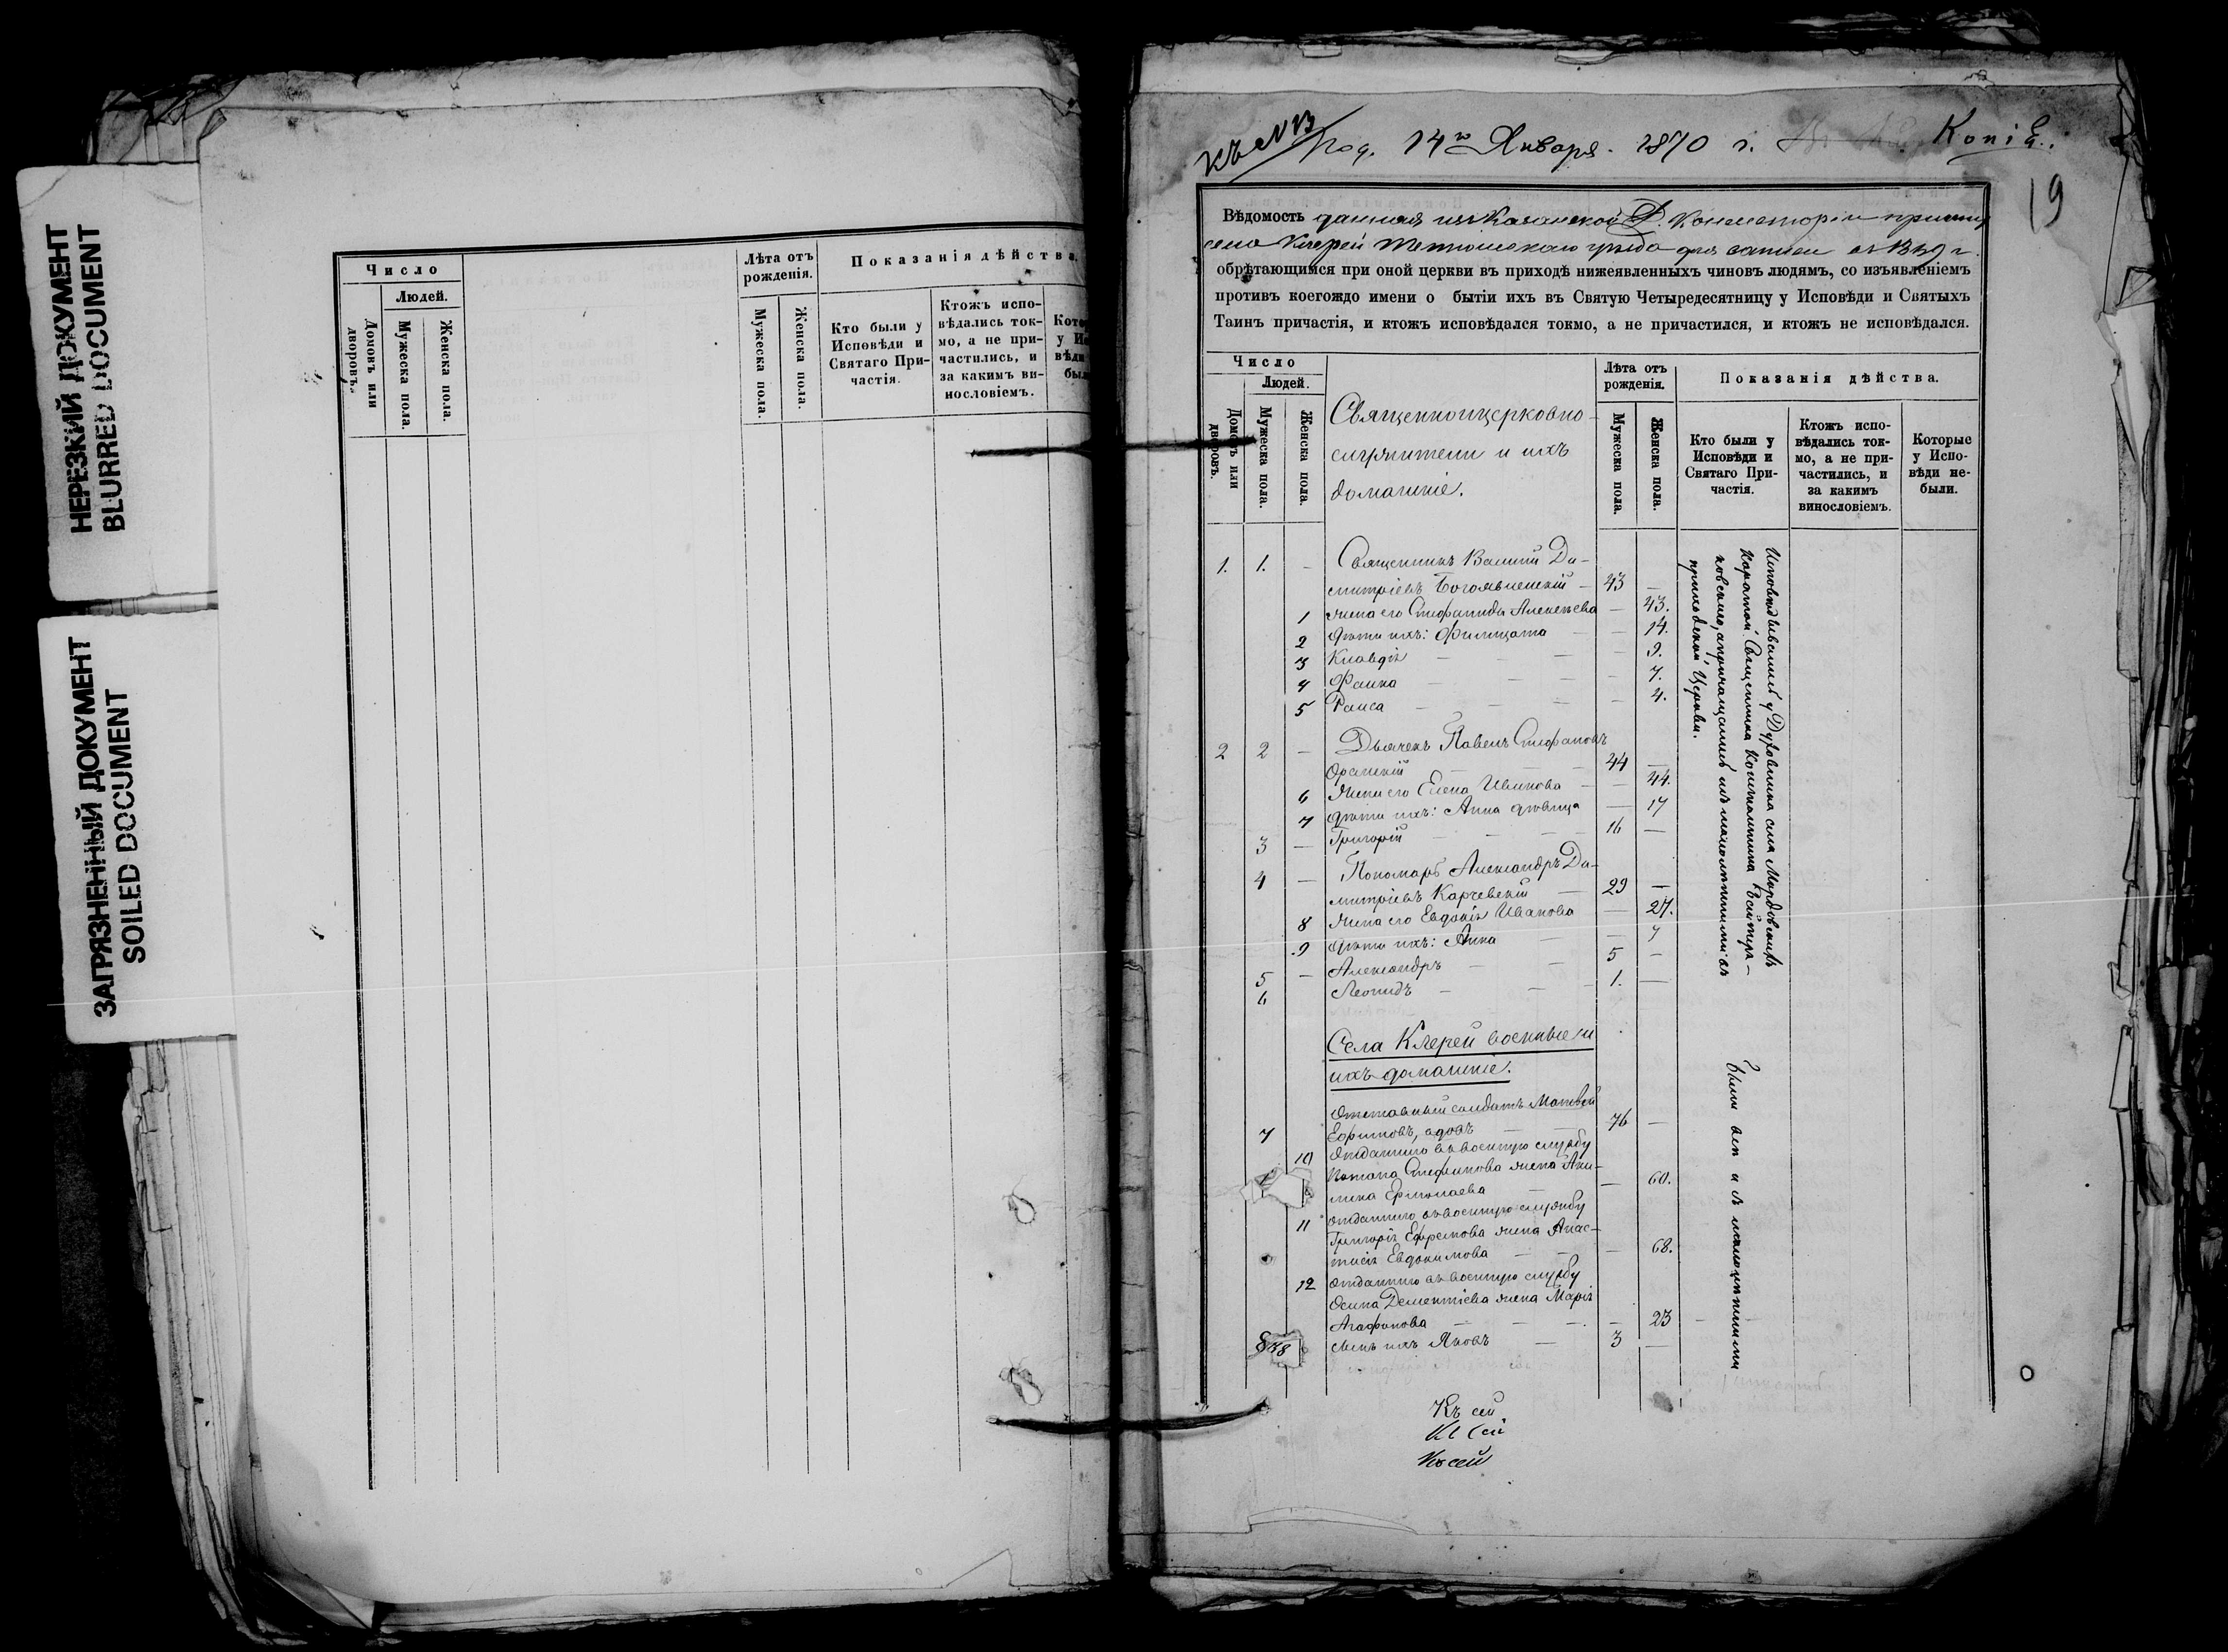 НЕРЕЗКИЙ ДОКУМЕНТ
BLURRED DOCUMENT
ЗАГРЯЗНЕННЫЙ ДОКУМЕНТ
SOILED DOCUMENT
Число
Людей.
Домовъ или дворовъ.
Мужеска пола.
Женска пола.
Лѣта отъ рожденія.
Мужеска пола.
Женска пола.
Показанія дѣйства.
Кто были у Исповѣди и Святаго Причастія.
Ктожъ исповѣдались токмо, а не причастились, и за какимъ винословіемъ.
къ №13
Под. 14го Января 1870 г. Копiя.
19
Вѣдомость данная изъ Казанской Д. Консисторіи причту
села Клярей Тетюшскаго уѣзда для записи въ 1869 г.
обрѣтающимся при оной церкви въ приходѣ нижеявленныхъ чиновъ людямъ, со изъявленіемъ
противъ коегождо имени о бытіи ихъ въ Святую Четыредесятницу у Исповѣди и Святыхъ
Таинъ причастія, и ктожъ исповѣдался токмо, а не причастился, и ктожъ не исповѣдался.
Число
Людей.
Домовъ или дворовъ.
Мужеска пола.
Женска пола.
Священноцерковно-
служители и ихъ
домашніе.
Лѣта отъ рожденія.
Мужеска пола.
Женска пола.
Показанія дѣйства.
Кто были у Исповѣди и Святаго Причастія.
Ктожъ исповѣдались токмо, а не причастились, и за какимъ винословіемъ.
Которые у Исповѣди небыли.
1. 1. — Священникъ Василій Ди-
митріевъ Богоявленскій — 43 —
1 жена его Стефанида Алексѣева — 43.
2 Дѣти ихъ: Филицата — — 14.
3 Клавдія — — — 9.
4 Фаина — — — — 7.
5 Раиса — — — — 4.
2 2 — Дьячекъ Павелъ Стефановъ
— — — 44 —
6 Жена его Елена Иванова — — 44.
7 Дѣти ихъ: Анна дѣвица — 17
3 — Григорій — — — 16 —
4 — Пономарь Александръ Ди-
митріевъ Карчевскій — 29 —
8 Жена его Евдокія Иванова — 27.
9 Дѣти ихъ: Анна — — 7
5 — Александръ — — 5 —
6 Леонидъ — — — 1. —
Исповѣдывались у Духовника села
Священника Константина
причащались
приходской Церкви.
Села Клярей военные и
ихъ домашніе.
Отставный солдатъ Матвѣй
7 Ефимовъ, вдовъ — — 76 —
10 Отданнаго въ военную службу
Потапа Стефанова жена Аку-
лина Ермолаева — — 60.
11 Отданнаго въ военную службу
Григорія Ефремова жена Анас-
тасія Евдокимова — — — 68.
12 Отданнаго въ военную службу
Осипа Дементіева жена Марія
Агафонова — — — — 23
8 сынъ ихъ Яковъ — 3 —
Были всѣ и съ малолѣтними
Къ сей
Къ сей
Къ сей